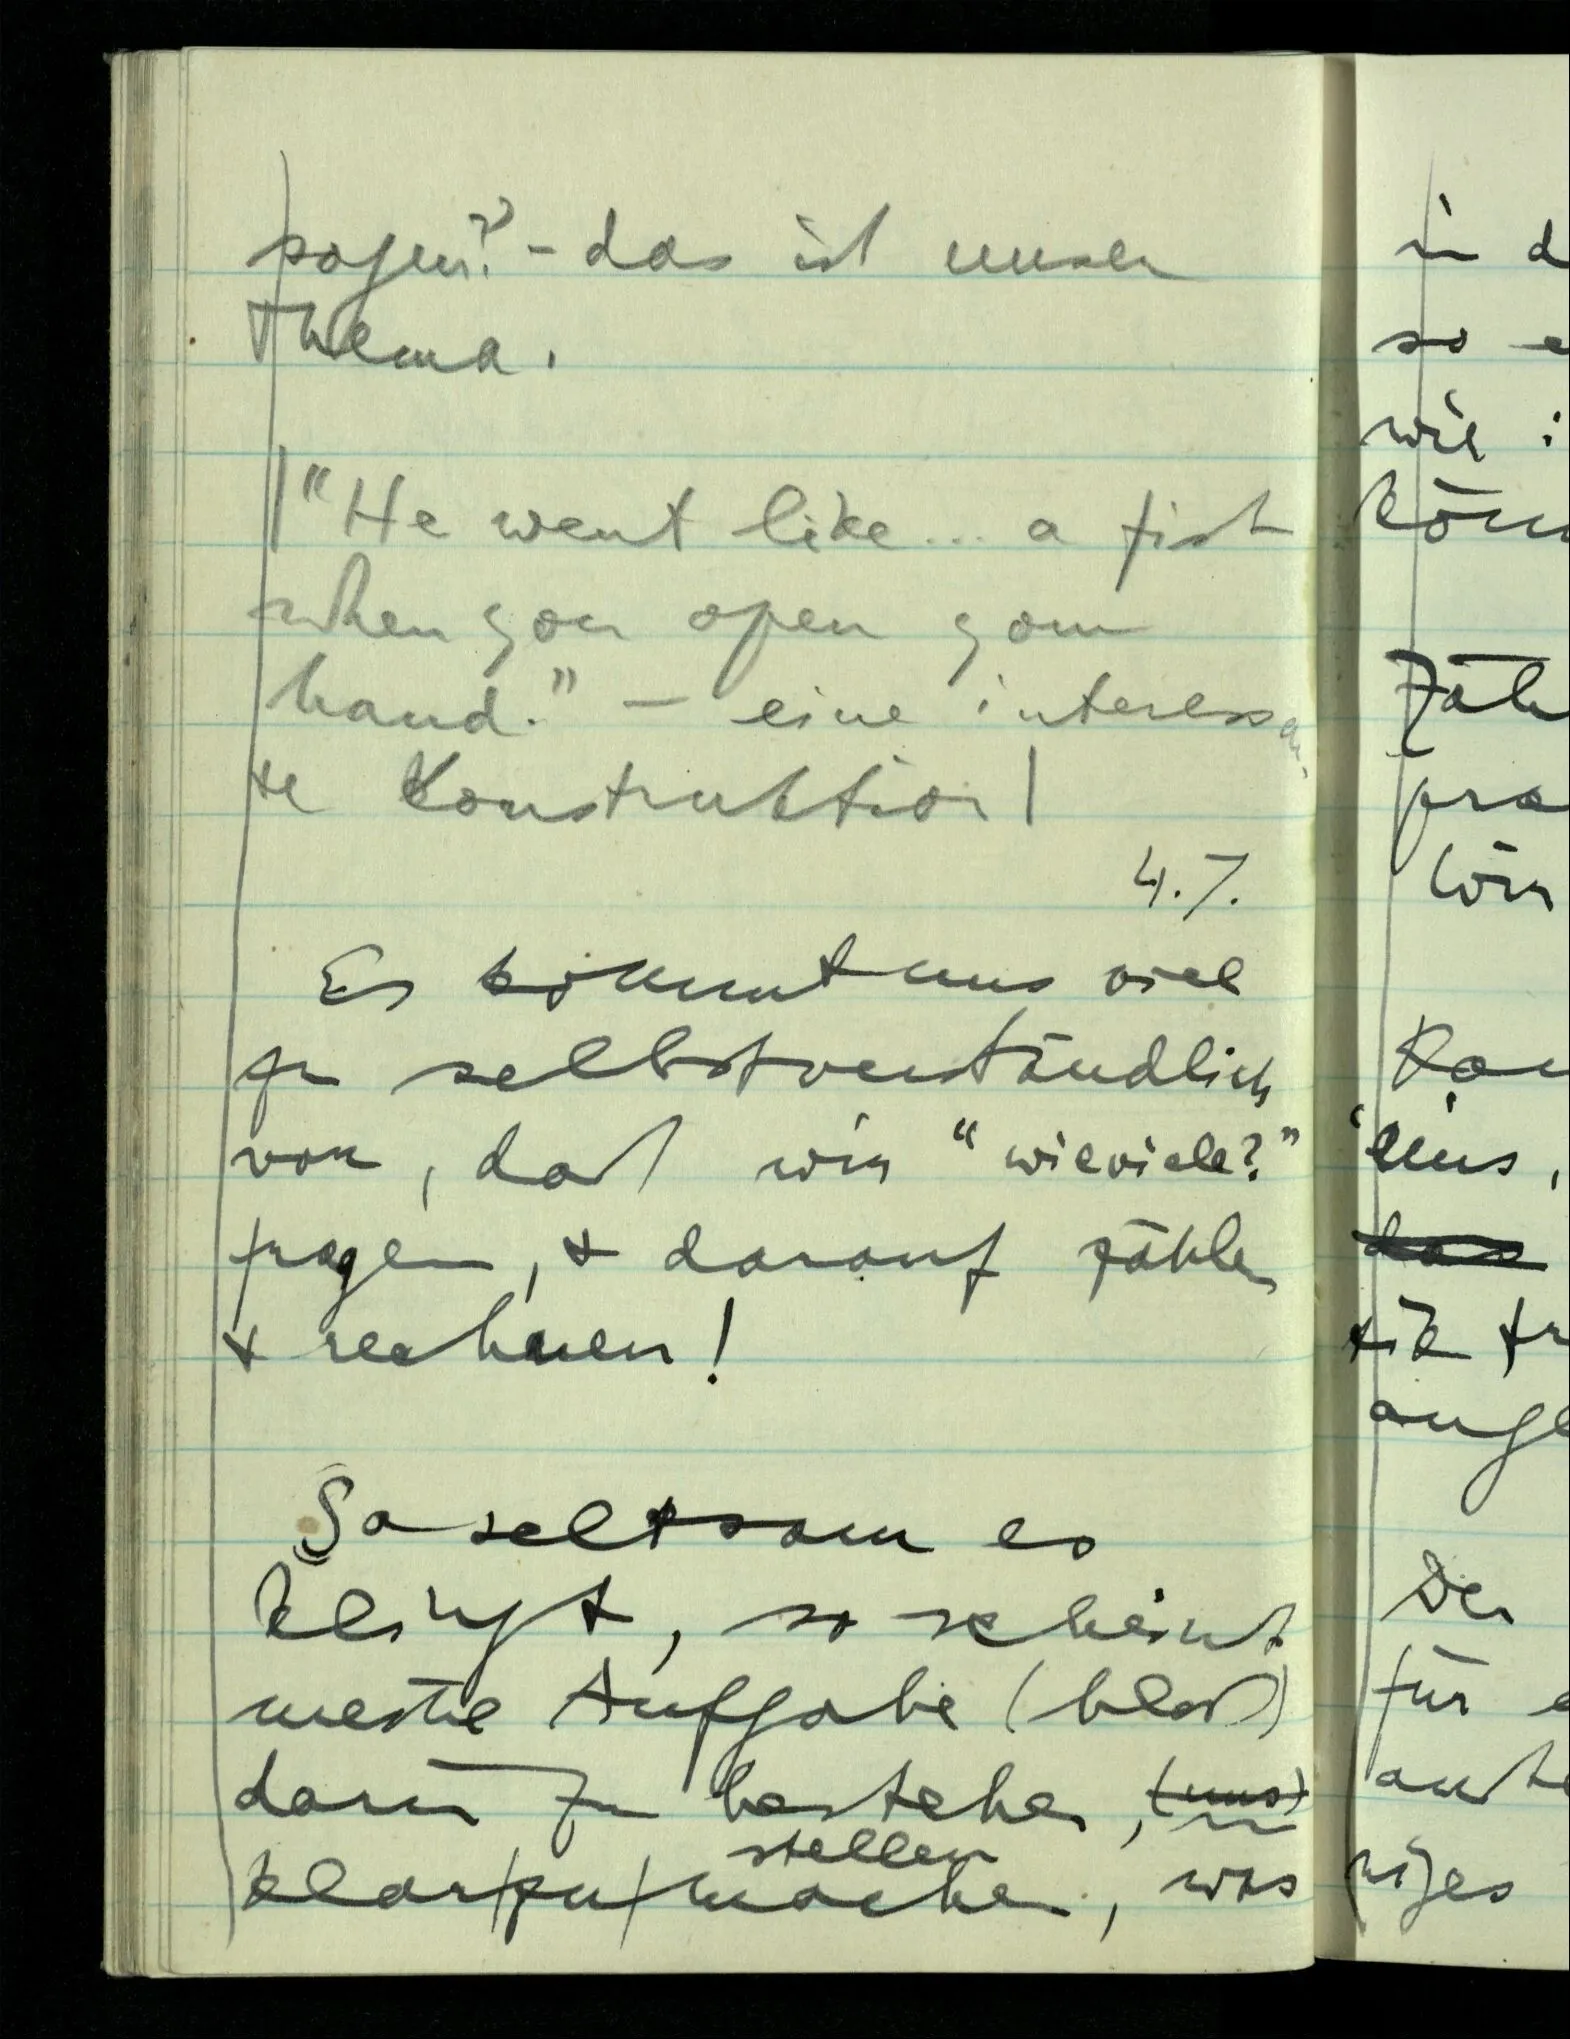 sagen?" – das ist unser
Thema.
|"He went like... a fist
when you open your
hand." – eine interessan-
te Konstruktion |
4.7.
Es kommt uns viel
zu selbstverständlich
vor, daß wir "wieviele?"
fragen, & darauf zählen
& rechnen!
So seltsam es
klingt, so scheint
meine Aufgabe (bloß)
darin zu bestehen, (uns)
stellen
klar/zu/machen, was
in d
so e
wie i
könn
Zäh
pra
wir
Kan
'eins,
das
tik tr
ange
Der
für e
ante
ziges